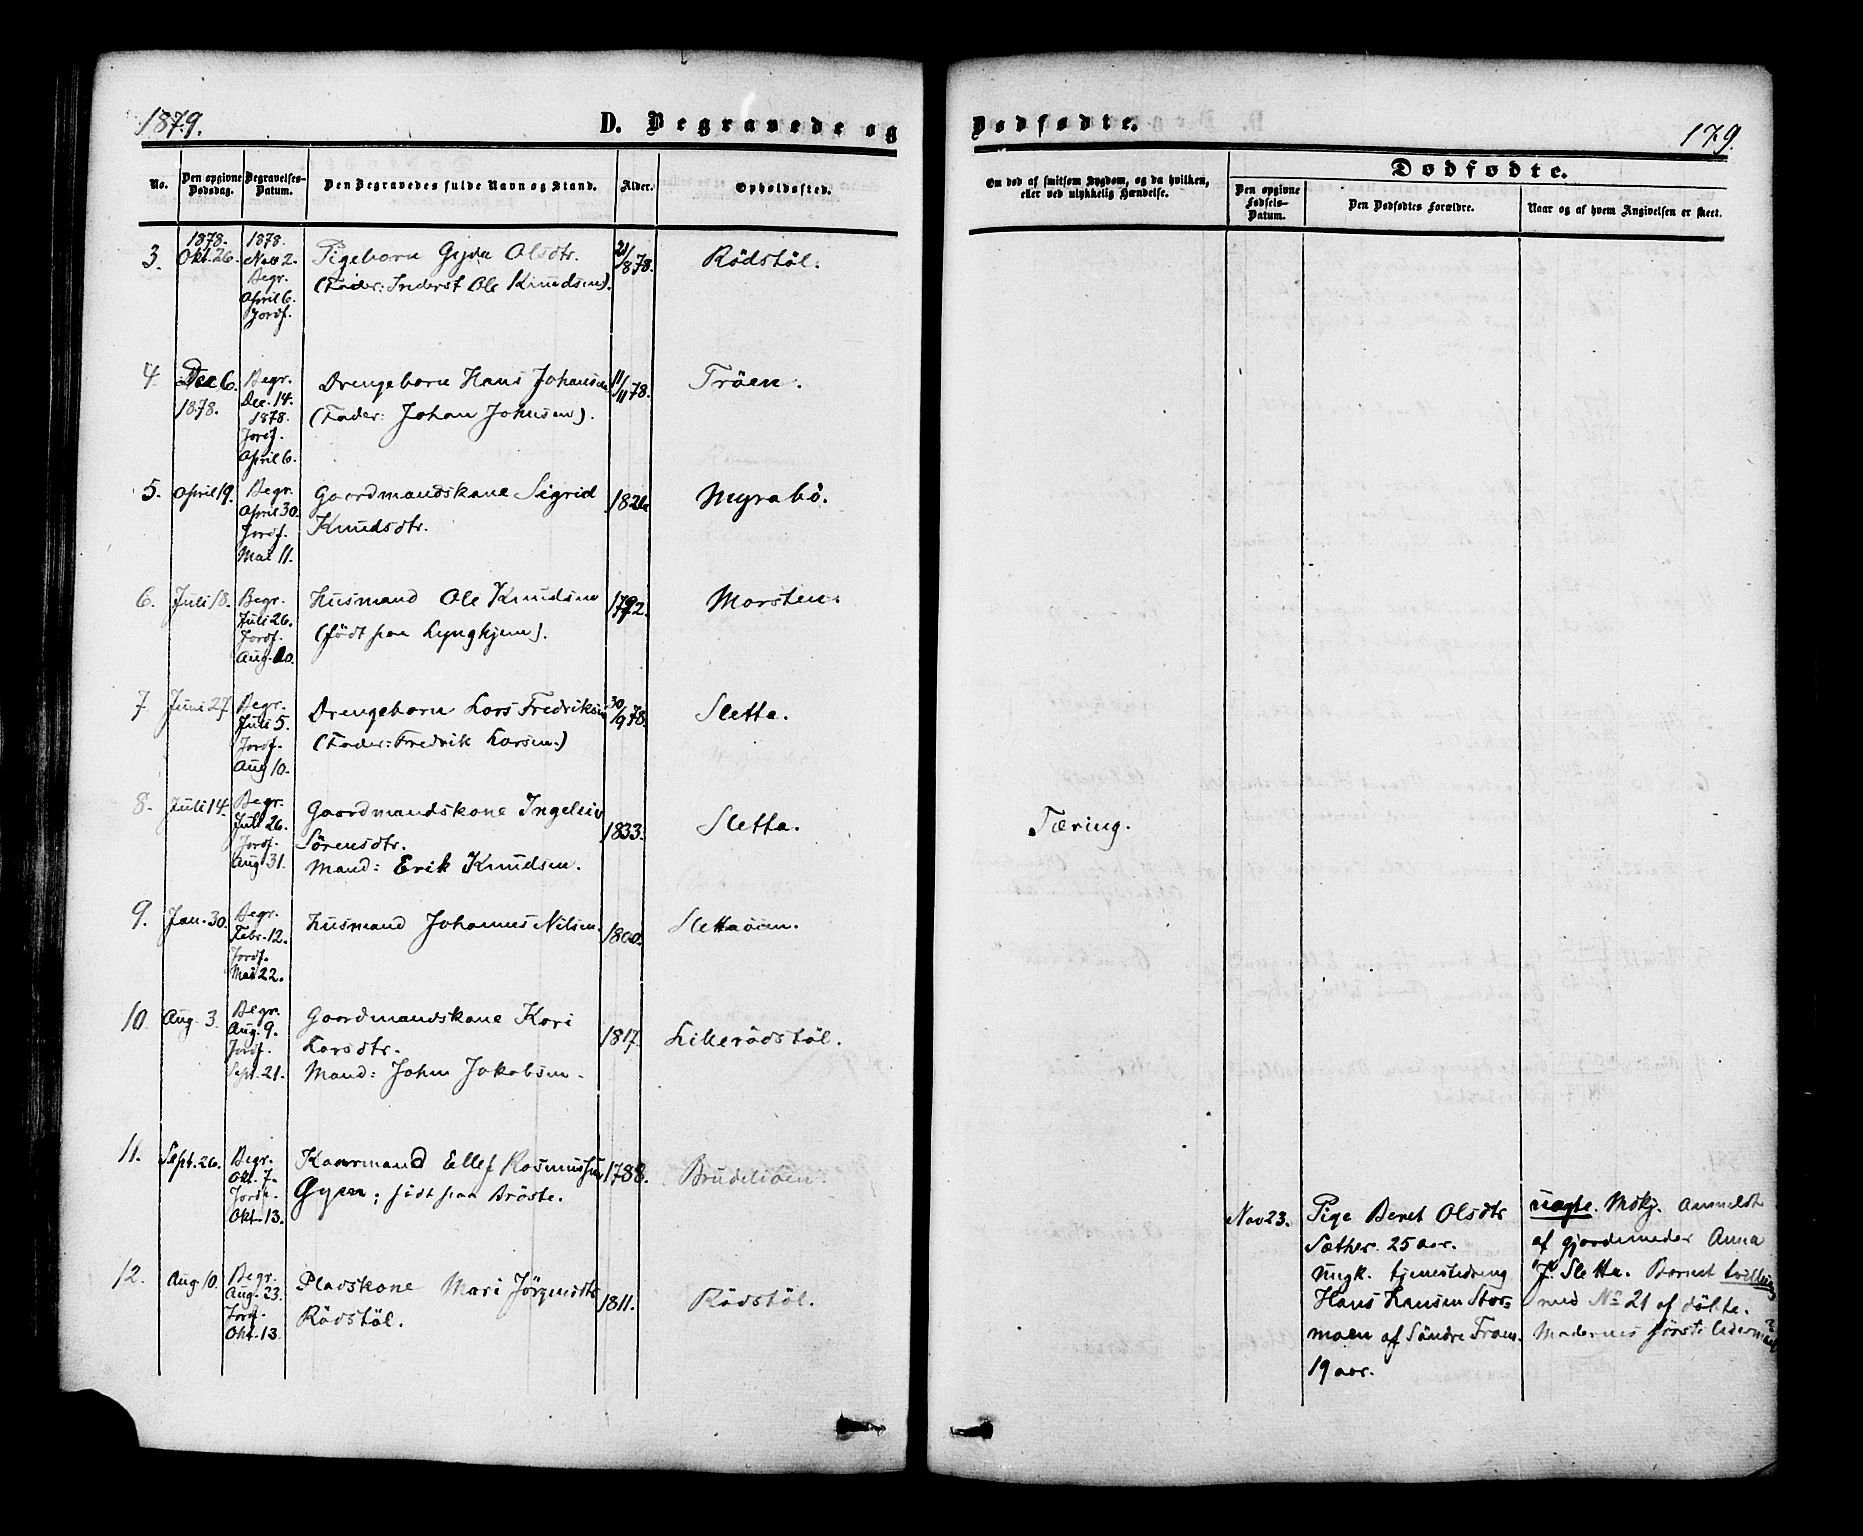 1879.
D. Begravede og
Dødfødte.
179.
No.
Den opgivne Dødsdag.
Begravelses-Datum.
Den Begravedes fulde Navn og Stand.
Alder.
Opholdssted.
Om død af smitsom Sygdom, og da hvilken, eller ved ulykkelig Hændelse.
Dødfødte.
Den opgivne Fødsels-Datum.
Den Dødfødtes Forældre.
Naar og af hvem Angivelsen er skeet.
3. 1878. Okt. 26. 1878. Nov 2. Begr. April 6. Jordf.
Pigebarn Gyda Olsdtr. 21/8 78. Rödstöl.
(Fader: Inderst Ole Knudsen).
4. Dec 6. 1878. Begr. Dec. 14. 1878. Jordf. April 6.
Drengebarn Hans Johansen 11/11 78. Tröen.
(Fader: Johan Johnsen).
5. April 19. Begr. April 30. Jordf. Mai 11.
Gaardmandskone Sigrid 1826 Myrabö.
Knudsdtr.
6. Juli 18. Begr. Juli 26. Jordf. Aug. 10.
Husmand Ole Knudsen 1792. Marsten.
(födt paa Lynghjem).
7. Juni 27. Begr. Juli 5. Jordf. Aug 10.
Drengebarn Lars Fredriksen 30/9 78. Sletta.
(Fader: Fredrik Larsen.)
8. Juli 14. Begr. Juli 26. Jordf. Aug 31.
Gaardmandskone Ingeleiv 1833. Sletta. Tæring.
Sörensdtr.
Mand: Erik Knudsen.
9. Jan. 30. Begr. Febr. 12. Jordf. Mai 22.
Husmand Johannes Nilsen. 1800. Slettaöien.
10. Aug. 3. Begr. Aug. 9. Jordf. Sept. 21.
Gaardmandskone Kari 1817. Lillerödstöl.
Larsdtr.
Mand: John Jakobsen.
11. Sept. 26. Begr. Okt. 7. Jordf. Okt. 13.
Kaarmand Ellef Rasmussen 1788. Brudeliöen.
Gyen; födt paa Bröste.
12. Aug 10. Begr. Aug. 23. Jordf. Okt. 13.
Pladskone Mari Jörgensdtr. 1811. Rödstöl.
Rödstöl.
Nov 23.
Pige Beret Olsdtr
Sæther. 25 aar.
Ungk. tjenestedreng
Hans Hansen Stor-
moen af Söndre Fron.
19 aar.
uægte. Mdkj. Anmeldt
af gjordemoder Anna
J. Sletta. Barnet tvilling
med No 21 af döbte.
Moderens förste leiermaal